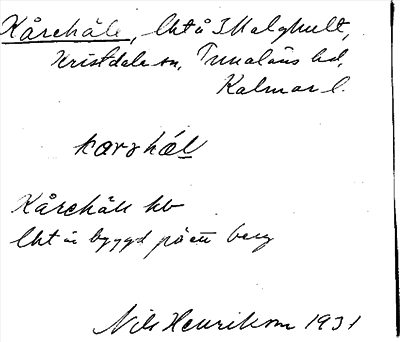 Kårehäle, lht å St Kalghult,
Kristdala sn, Tunaläns hd,
Kalmar l.
karəhǽl
Kårehäle kb
lht är byggd på ett berg
Nils Henrikson 1931